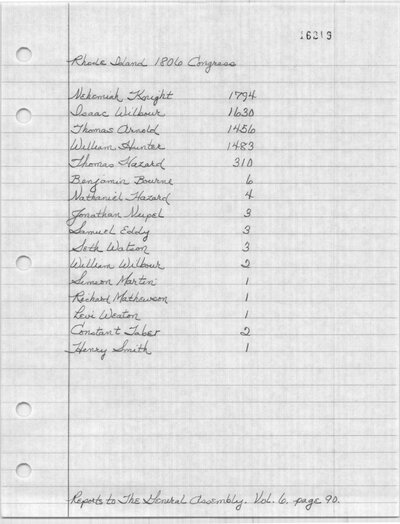 16213
Rhode Island 1806 Congress
Nehemiah Knight 1794
Isaac Wilbour 1630
Thomas Arnold 1456
William Hunter 1483
Thomas Hazard 310
Benjamin Bourne 6
Nathaniel Hazard 4
Jonathan 3
Samuel Eddy 3
Seth Watson 3
William Wilbour 2
Simeon Martin 1
Richard Mathewson 1
Levi 1
Constant Taber 2
Henry Smith 1
Reports to The General Assembly. Vol. 6. page 90.